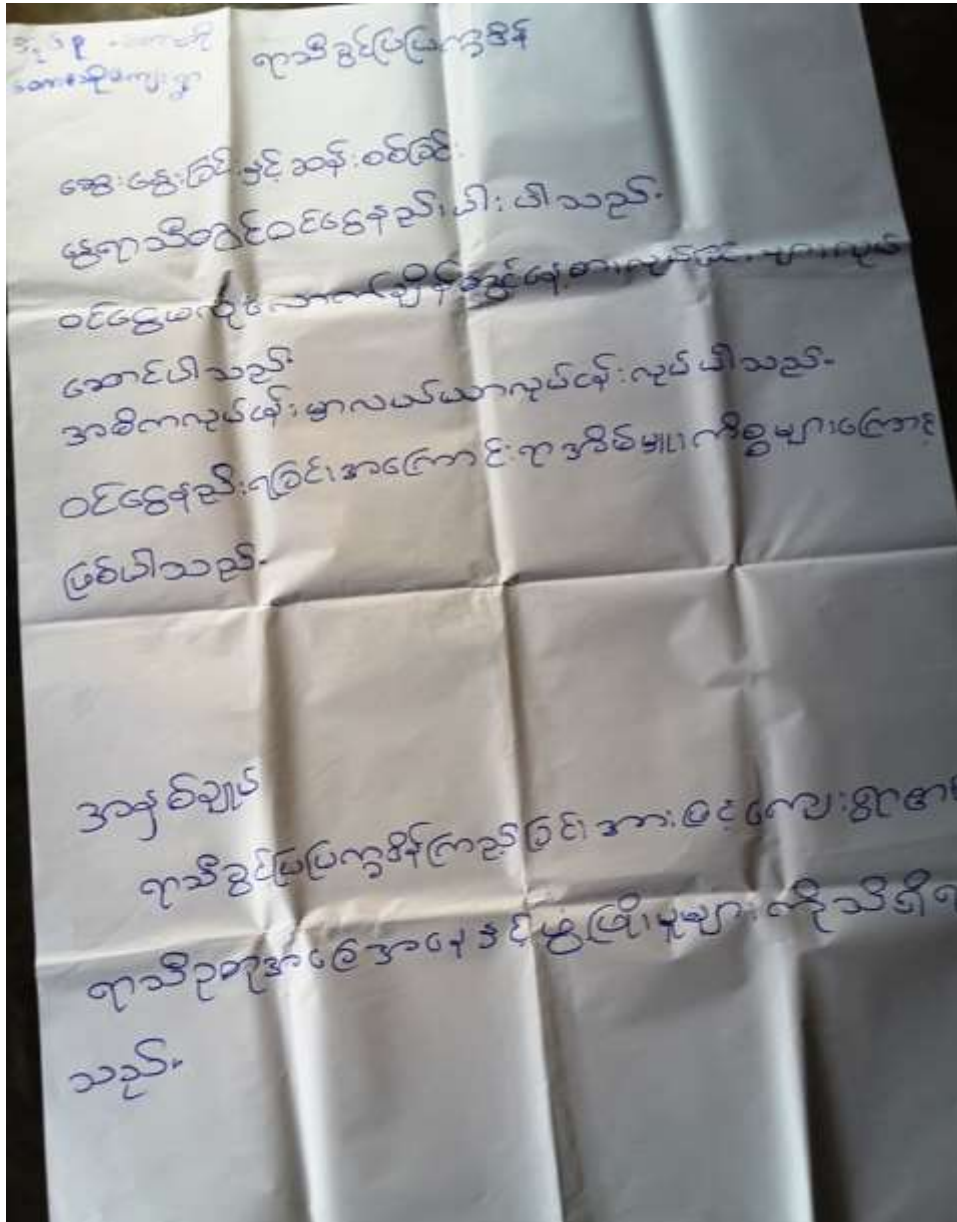 ရာသီခွင်ပြပြက္ခဒိန်
ဆွေးနွေးခြင်းနှင့်ဆန်းစစ်ခြင်း
နွေရာသီတွင်ဝင်ငွေနည်းပါးပါသည်။
ဝင်ငွေမလုံလောက်ချိန်တွင်နေ့စားလုပ်ခြင်းများလုပ်
ဆောင်ပါသည်။
အဓိကလုပ်ငန်းမှာလယ်ယာလုပ်ငန်းလုပ်ပါသည်။
ဝင်ငွေနည်းရခြင်းအကြောင်း ကိစ္စများကြောင့်
ဖြစ်ပါသည်။
အနှစ်ချုပ်
ရာသီခွင်ပြပြက္ခဒိန်ကြည့်ခြင်းအားဖြင့်ကျေးရွာ
ရာသီဥတုအခြေအနေနှင့်ဖွံ့ဖြိုးမှုများကိုသိရှိရ
သည်။